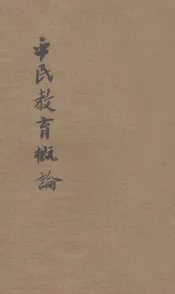 平民教育概論